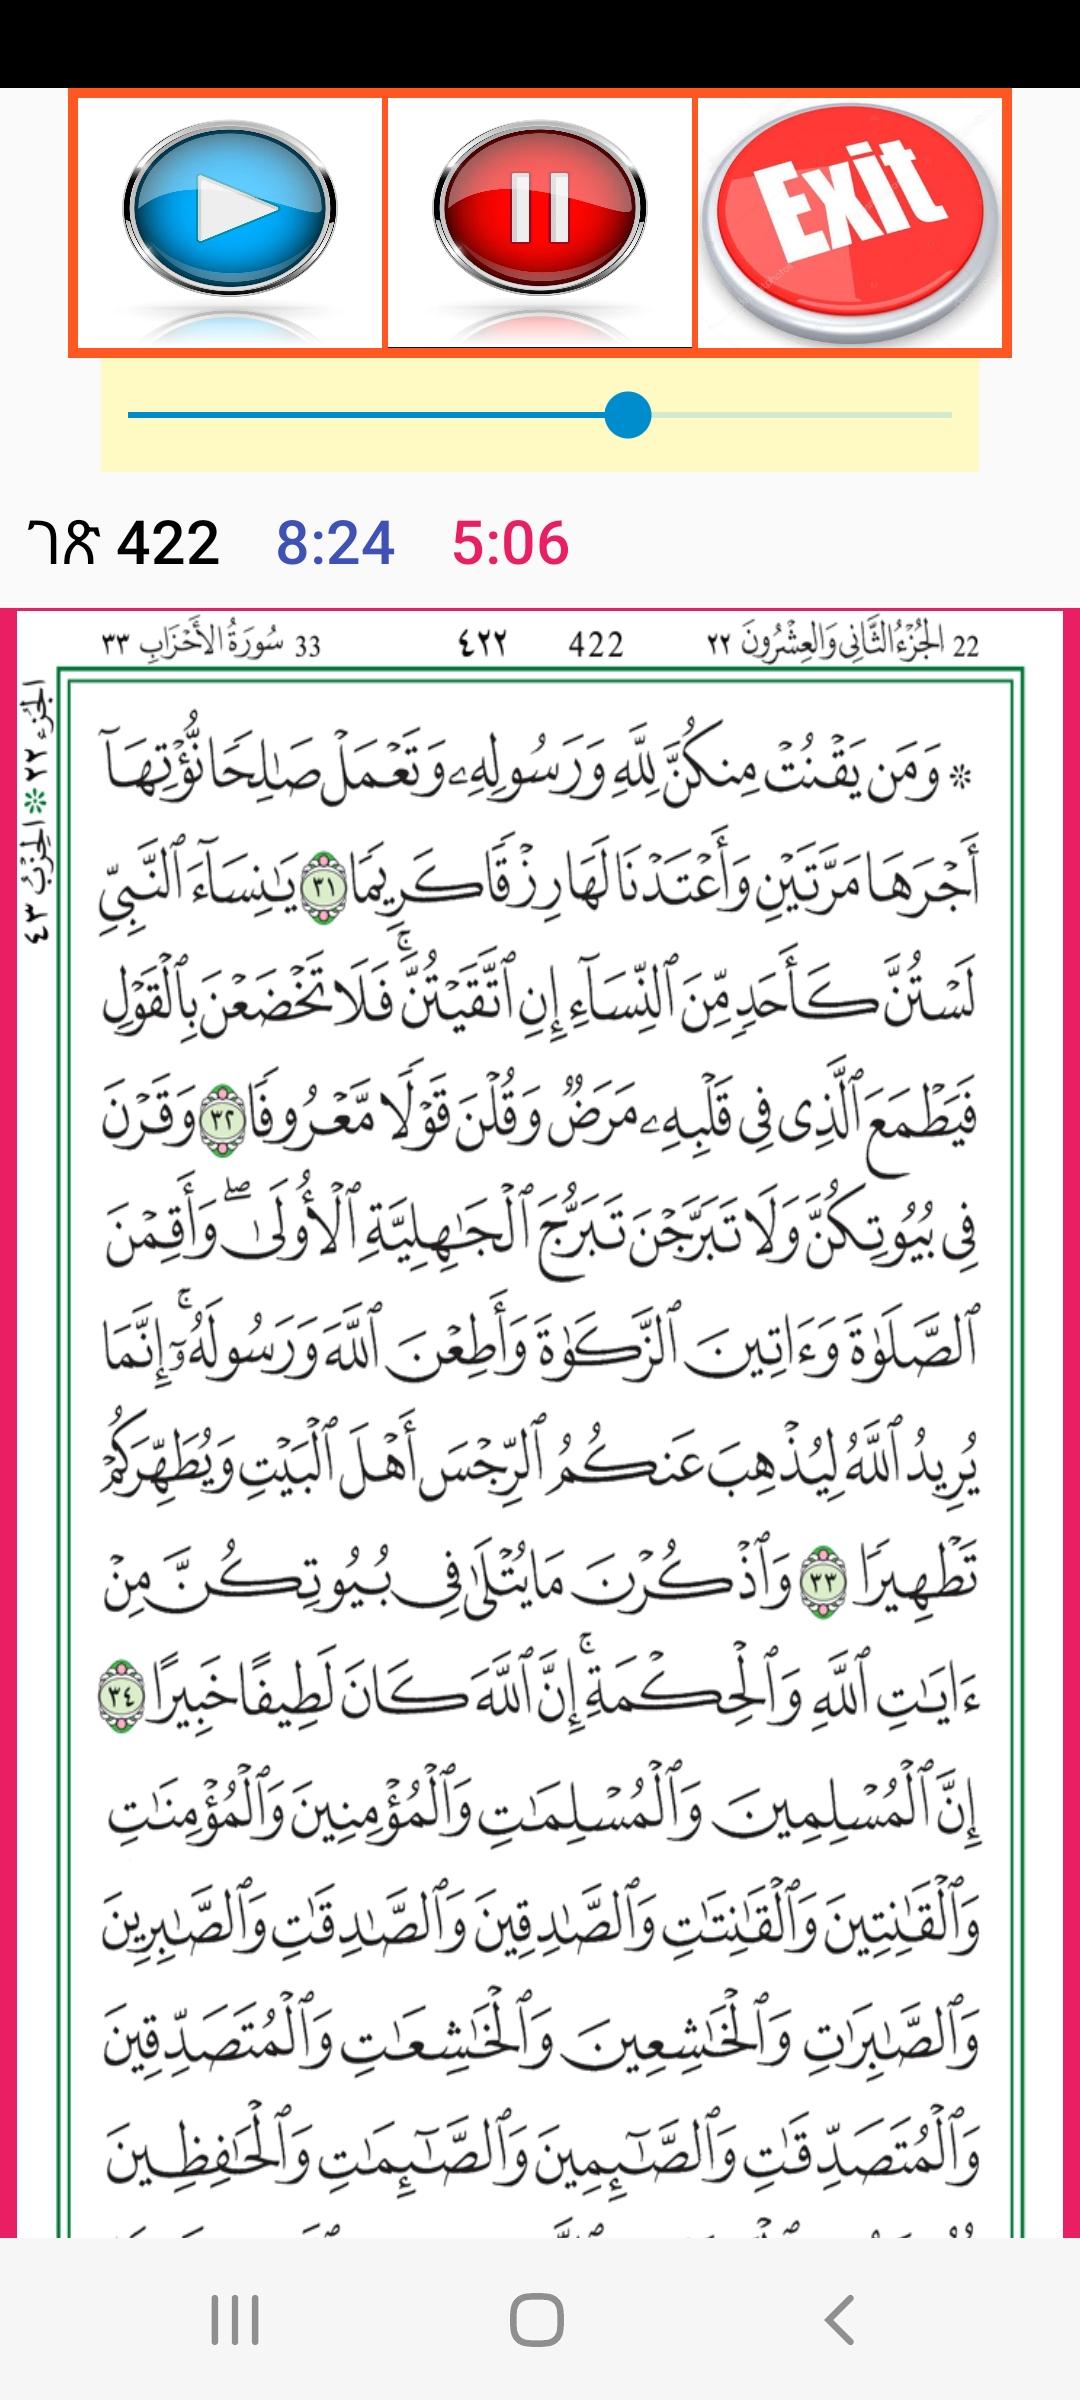 Exit
ገጽ 422 8:24 5:06
22 الجُزْءُ الثَّانِي وَالعِشْرُونَ ٢٢ 422 ٤٢٢ 33 سُورَةُ الأَحْزَابِ ٣٣
الجزء ٢٢ ۞ الحِزْبُ ٤٣
۞ وَمَن يَقْنُتْ مِنكُنَّ لِلَّهِ وَرَسُولِهِۦ وَتَعْمَلْ صَٰلِحًا نُّؤْتِهَآ
أَجْرَهَا مَرَّتَيْنِ وَأَعْتَدْنَا لَهَا رِزْقًا كَرِيمًا ٣١ يَٰنِسَآءَ ٱلنَّبِىِّ
لَسْتُنَّ كَأَحَدٍ مِّنَ ٱلنِّسَآءِ إِنِ ٱتَّقَيْتُنَّ ۚ فَلَا تَخْضَعْنَ بِٱلْقَوْلِ
فَيَطْمَعَ ٱلَّذِى فِى قَلْبِهِۦ مَرَضٌ وَقُلْنَ قَوْلًا مَّعْرُوفًا ٣٢ وَقَرْنَ
فِى بُيُوتِكُنَّ وَلَا تَبَرَّجْنَ تَبَرُّجَ ٱلْجَٰهِلِيَّةِ ٱلْأُولَىٰ ۖ وَأَقِمْنَ
ٱلصَّلَوٰةَ وَءَاتِينَ ٱلزَّكَوٰةَ وَأَطِعْنَ ٱللَّهَ وَرَسُولَهُۥٓ ۚ إِنَّمَا
يُرِيدُ ٱللَّهُ لِيُذْهِبَ عَنكُمُ ٱلرِّجْسَ أَهْلَ ٱلْبَيْتِ وَيُطَهِّرَكُمْ
تَطْهِيرًا ٣٣ وَٱذْكُرْنَ مَا يُتْلَىٰ فِى بُيُوتِكُنَّ مِنْ
ءَايَٰتِ ٱللَّهِ وَٱلْحِكْمَةِ ۚ إِنَّ ٱللَّهَ كَانَ لَطِيفًا خَبِيرًا ٣٤
إِنَّ ٱلْمُسْلِمِينَ وَٱلْمُسْلِمَٰتِ وَٱلْمُؤْمِنِينَ وَٱلْمُؤْمِنَٰتِ
وَٱلْقَٰنِتِينَ وَٱلْقَٰنِتَٰتِ وَٱلصَّٰدِقِينَ وَٱلصَّٰدِقَٰتِ وَٱلصَّٰبِرِينَ
وَٱلصَّٰبِرَٰتِ وَٱلْخَٰشِعِينَ وَٱلْخَٰشِعَٰتِ وَٱلْمُتَصَدِّقِينَ
وَٱلْمُتَصَدِّقَٰتِ وَٱلصَّٰٓئِمِينَ وَٱلصَّٰٓئِمَٰتِ وَٱلْحَٰفِظِينَ